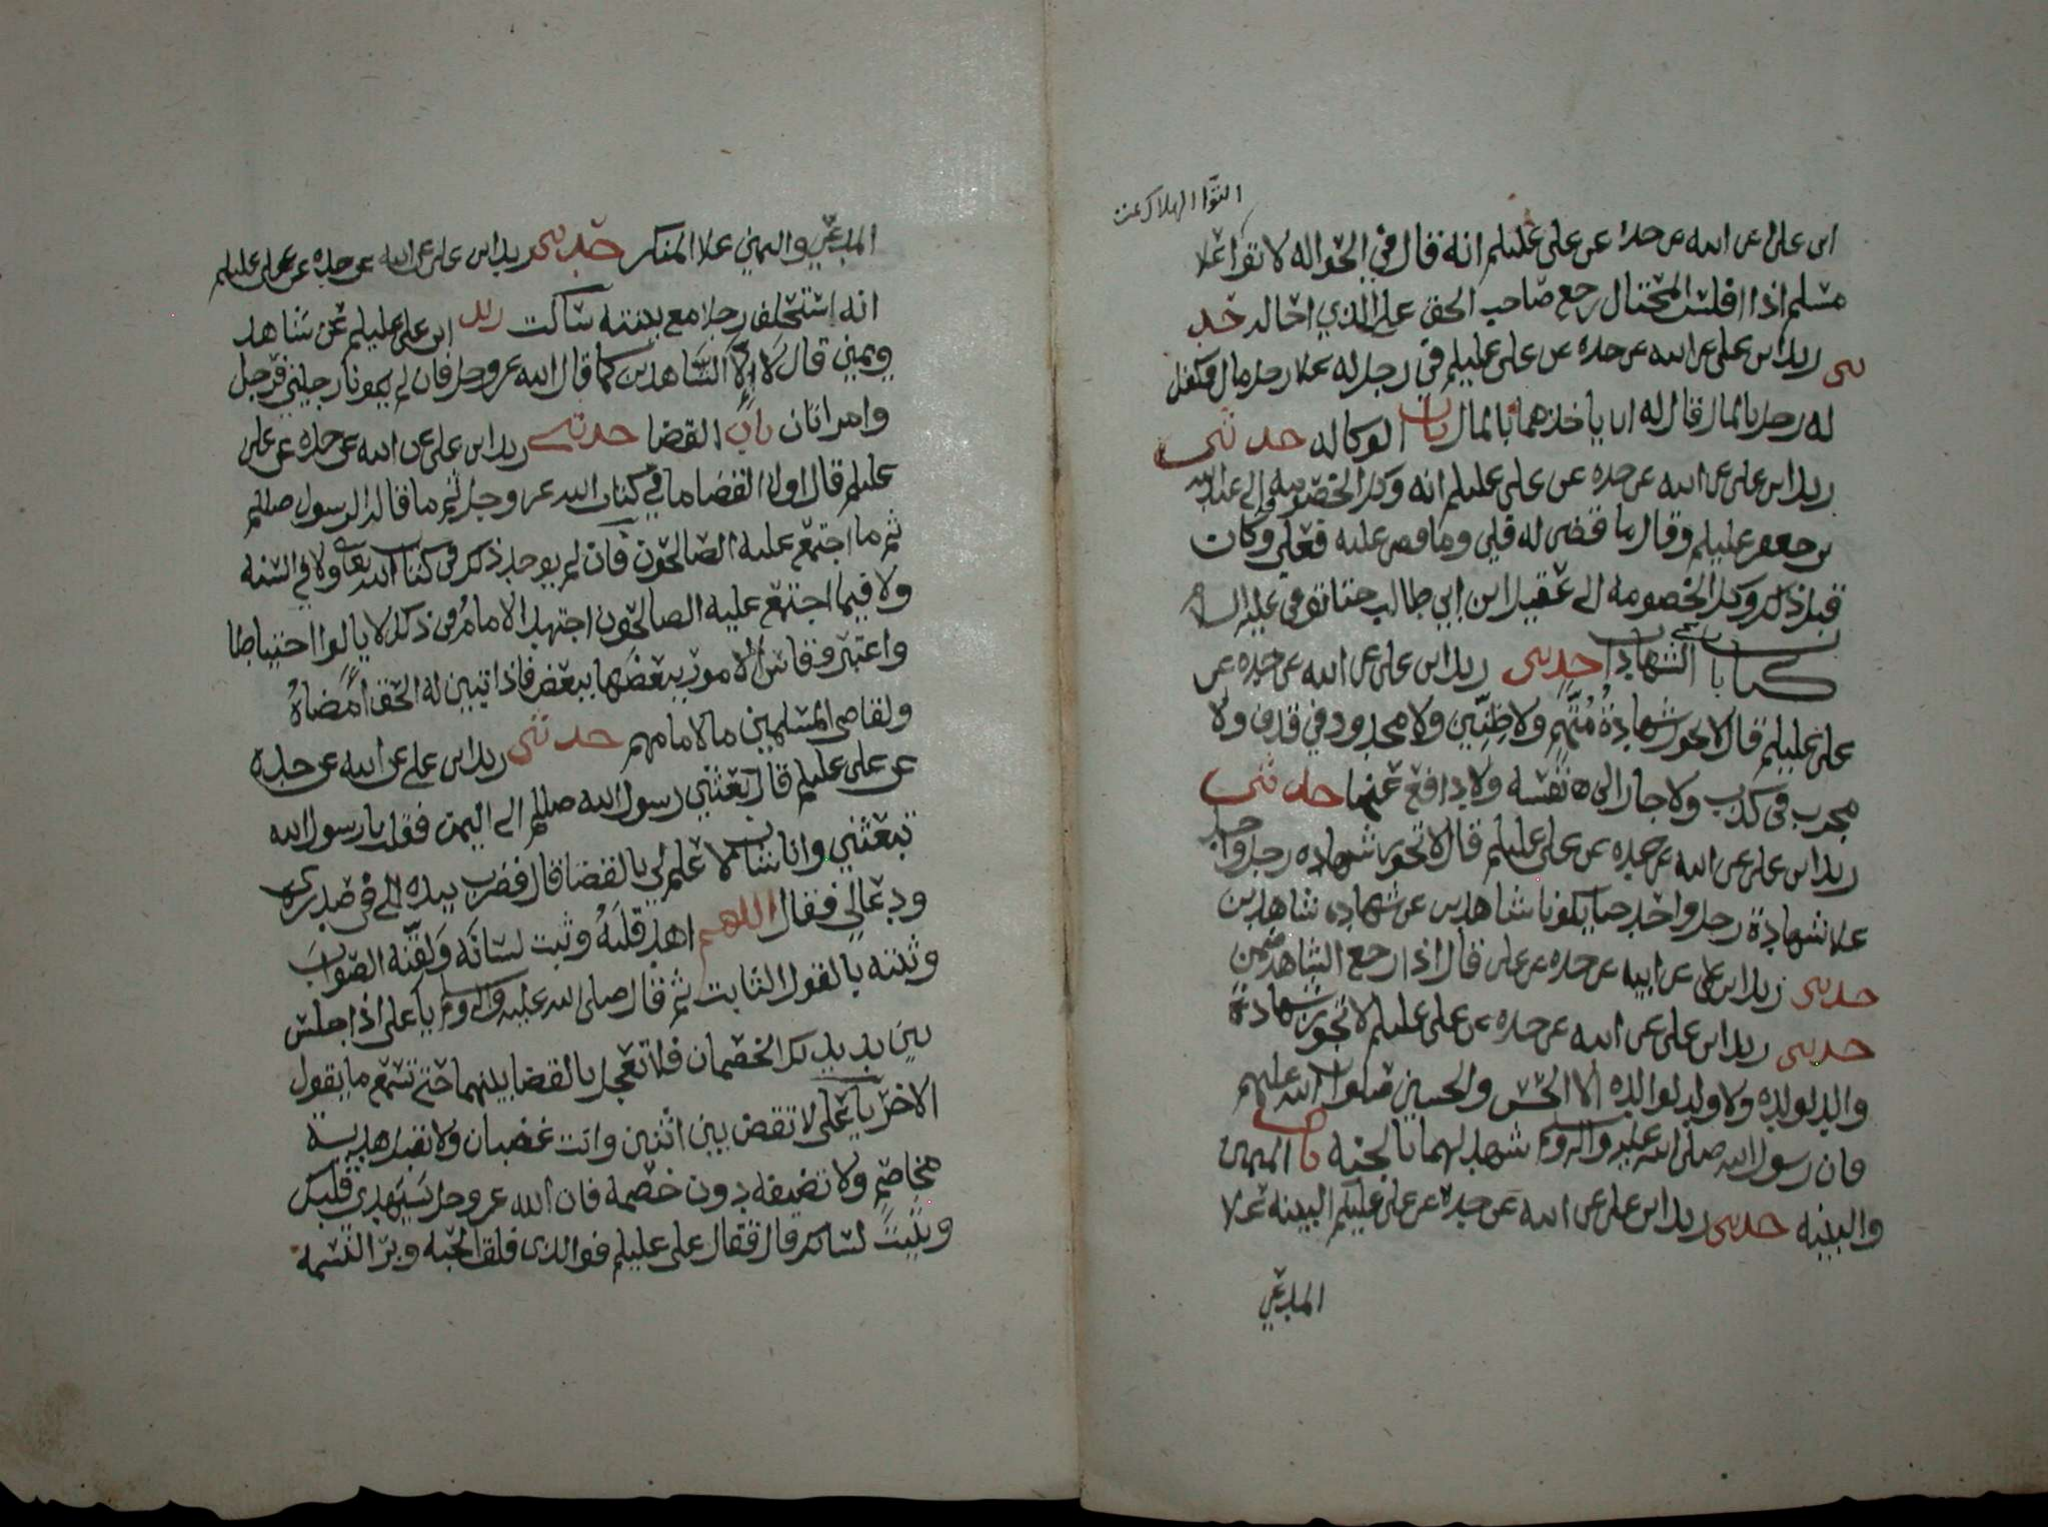 التوّا الهلاك تمت
ابن علي عن ابيه عن جده عن علي عليلم انه قال في الحواله لا توا علا
مسلم اذا افلس المحتال رجع صاحب الحق علا الذي احاله حد
ثني زيد ابن علي عن ابيه عن جده عن علي عليلم في رجل له علا رجل مال فكفل
له رجل بالمال قال له ان ياخذهما بالمال باب الوكاله حدثني
زيد ابن علي عن ابيه عن جده عن علي عليلم انه وكل الخصومه الى عبدالله
بن جعفر عليلم وقال ما قضى له فلي وما قضي عليه فعلي وكان
قبل ذلك وكل الخصومه الى عقيل ابن ابي طالب حتا توفي عليه السلام
كتاب الشهادات حدثني زيد ابن علي عن ابيه عن جده عن
علي عليلم قال لا تجوز شهادة متهم ولا ظنين ولا محدود في قذف ولا
مجرب في كذب ولا جار الى نفسه ولا دافع عنها حدثني
زيد ابن علي عن ابيه عن جده عن علي عليلم قال لا تجوز شهاده رجل واحد
علا شهادة رجل واحد حتا يكونا شاهدين عن شهاده شاهدين
حدثني زيد ابن علي عن ابيه عن جده عن علي قال اذا رجع الشاهد ضمن
حدثني زيد ابن علي عن ابيه عن جده عن علي عليلم لا تجوز شهادة
والد لولده ولا ولد لوالده الا الحسن والحسين صلوات الله عليهم
فان رسول الله صلى الله عليه واله وسلم شهد لهما بالجنه باب اليمين
والبينه حدثني زيد ابن علي عن ابيه عن جده عن علي عليلم البينه علا
المدعي
المدعي واليمين علا المنكر حدثني زيد ابن علي عن ابيه عن جده عن علي عليلم
انه استحلف رجلا مع بينته سالت زيد ابن علي عليلم عن شاهد
ويمين قال لا الا الشاهدين كما قال الله عز وجل فان لم يكونا رجلين فرجل
وامراتان باب القضا حدثني زيد ابن علي عن ابيه عن جده عن علي
عليلم قال اول القضا ما في كتاب الله عز وجل ثم ما قاله الرسول صللم
ثم ما اجتمع عليه الصالحون فان لم يوجد ذكر في كتاب الله تعا ولا في السنه
ولا فيما اجتمع عليه الصالحون اجتهد الامام في ذلك لا يالوا احتياطا
واعتبر وقاس الامور بعضها ببعض فاذا تبين له الحق امضاه
ولقاضي المسلمين ما لامامهم حدثني زيد ابن علي عن ابيه عن جده
عن علي عليلم قال بعثني رسول الله صللم الى اليمن فقلت يا رسول الله
تبعثني وانا شاب لا علم لي بالقضا قال فضرب بيده الى في صدري
ودعا لي فقال اللهم اهد قلبه وثبت لسانه ولقنه الصواب
وثبته بالقول الثابت ثم قال صلى الله عليه واله وسلم يا علي اذا جلس
بين يديك الخصمان فلا تعجل بالقضا بينهما حتى تسمع ما يقول
الاخر يا علي لا تقض بين اثنين وانت غضبان ولا تقبل هدية
مخاصم ولا تضيفه دون خصمه فان الله عز وجل سيهدي قلبك
ويثبت لسانك قال فقال علي عليلم فوالذي فلق الحبه وبرا النسمه